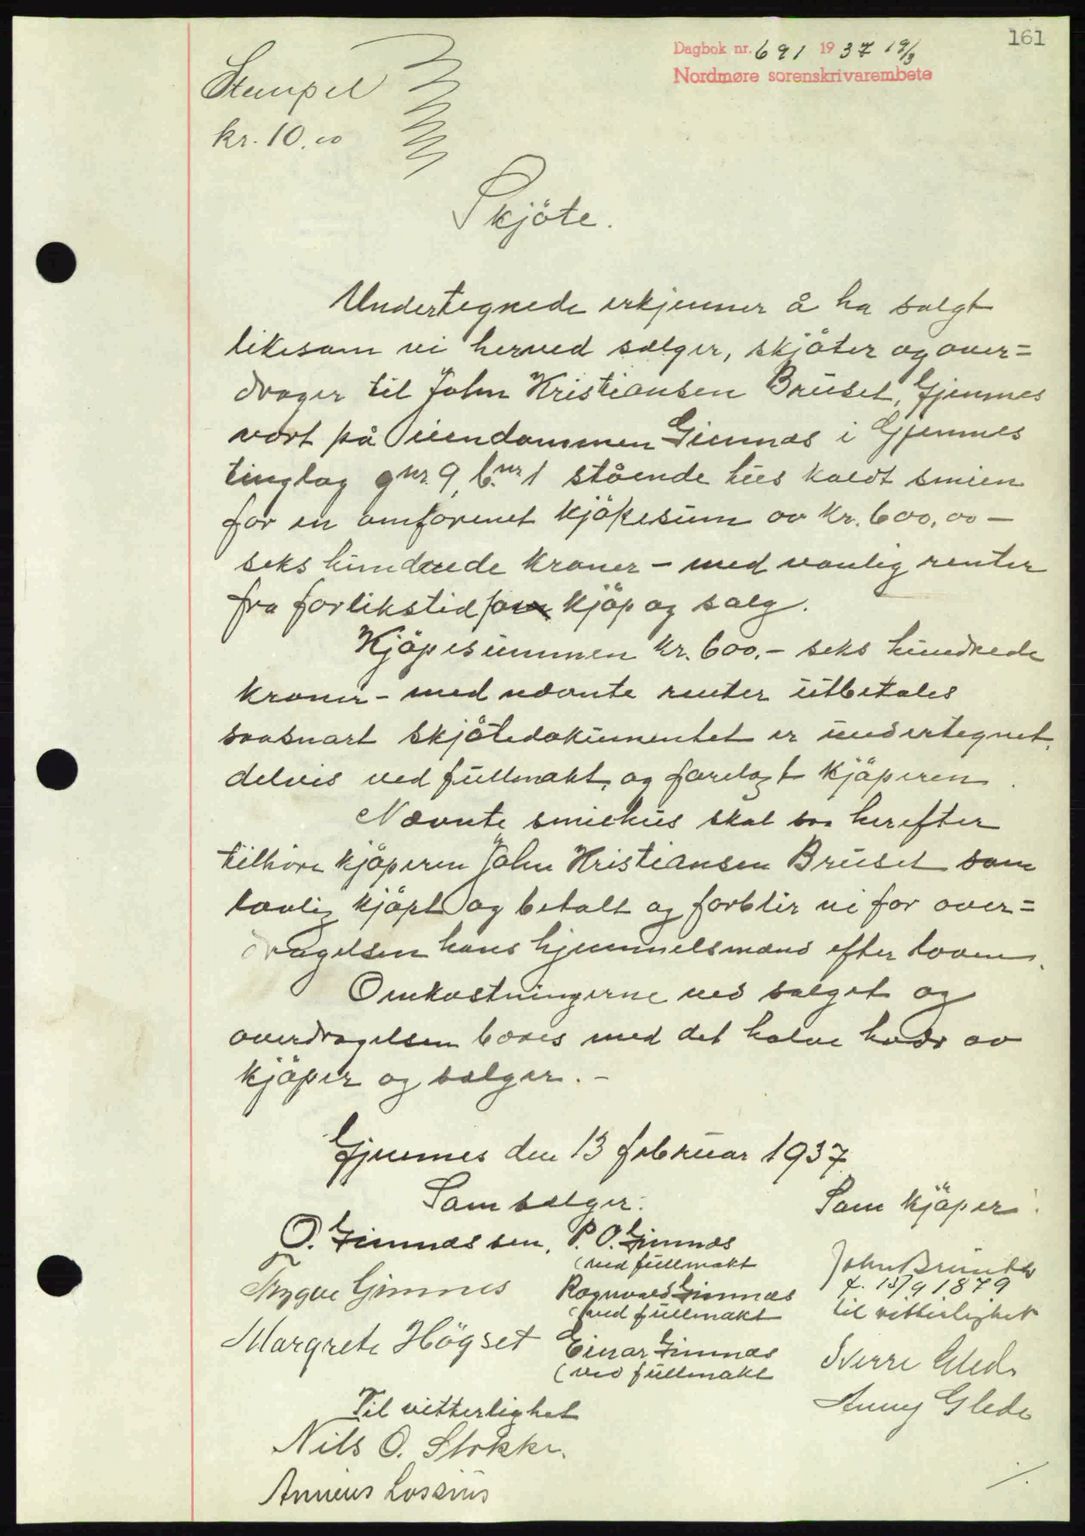 161
Dagbok nr. 691 1937 19/3
Nordmøre sorenskrivarembete
Stempel
kr. 10.00
Skjöte.
Undertegnede erkjenner å ha solgt
likesom vi herved sælger, skjöter og over=
drager til John Kristiansen Bruset, Gjemnes
vort på eiendommen Gimnæs i Gjemnes
tinglag gnr. 9, b.nr 1 stående hus kaldt smien
for en omforenet kjöpesum av kr. 600,00 —
seks hundrede kroner — med vanlig renter
fra forlikstid kjöp og salg.
Kjöpesummen kr. 600.— seks hundrede
kroner — med nævnte renter utbetales
saasnart skjötedokumentet er undertegnet,
delvis ved fullmakt, og forelagt kjöperen.
Nævnte smiehus skal saa herefter
tilhöre kjöperen John Kristiansen Bruset som
lovlig kjöpt og betalt og forblir vi for over=
dragelsen hans hjemmelsmænd efter loven.
Omkostningerne ved salget og
overdragelsen bæres med det halve hver av
kjöper og sælger. —
Gjemnes den 13 februar 1937
Som sælger: Som kjöper:
O. Gimnæs sen, P. O. Gimnæs
(ved fullmakt John Bruset
Trygve Gimnes Ragnvald Gimnæs f. 15/9 1879
(ved fullmakt til vitterlighet
Margrete Högset Einar Gimnæs Sverre Glede
(ved fullmakt
Til vitterlighet Anny Glede
Nils O. Stokke.
Annæus Lossius